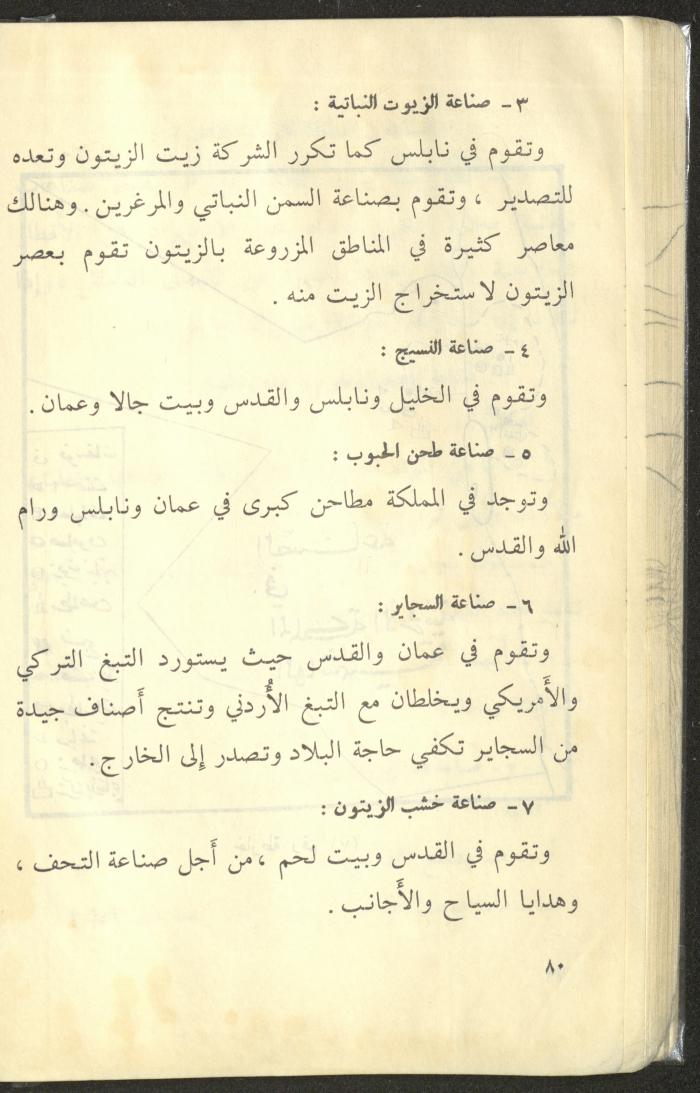 ٣ - صناعة الزيوت النباتية :
وتقوم في نابلس كما تكرر الشركة زيت الزيتون وتعده
للتصدير ، وتقوم بصناعة السمن النباتي والمرغرين . وهنالك
معاصر كثيرة في المناطق المزروعة بالزيتون تقوم بعصر
الزيتون لاستخراج الزيت منه .
٤ - صناعة النسيج :
وتقوم في الخليل ونابلس والقدس وبيت جالا وعمان .
٥ - صناعة طحن الحبوب :
وتوجد في المملكة مطاحن كبرى في عمان ونابلس ورام
الله والقدس .
٦ - صناعة السجاير :
وتقوم في عمان والقدس حيث يستورد التبغ التركي
والأمريكي ويخلطان مع التبغ الأُردني وتنتج أصناف جيدة
من السجاير تكفي حاجة البلاد وتصدر إلى الخارج .
٧ - صناعة خشب الزيتون :
وتقوم في القدس وبيت لحم ، من أجل صناعة التحف ،
وهدايا السياح والأجانب .
٨٠